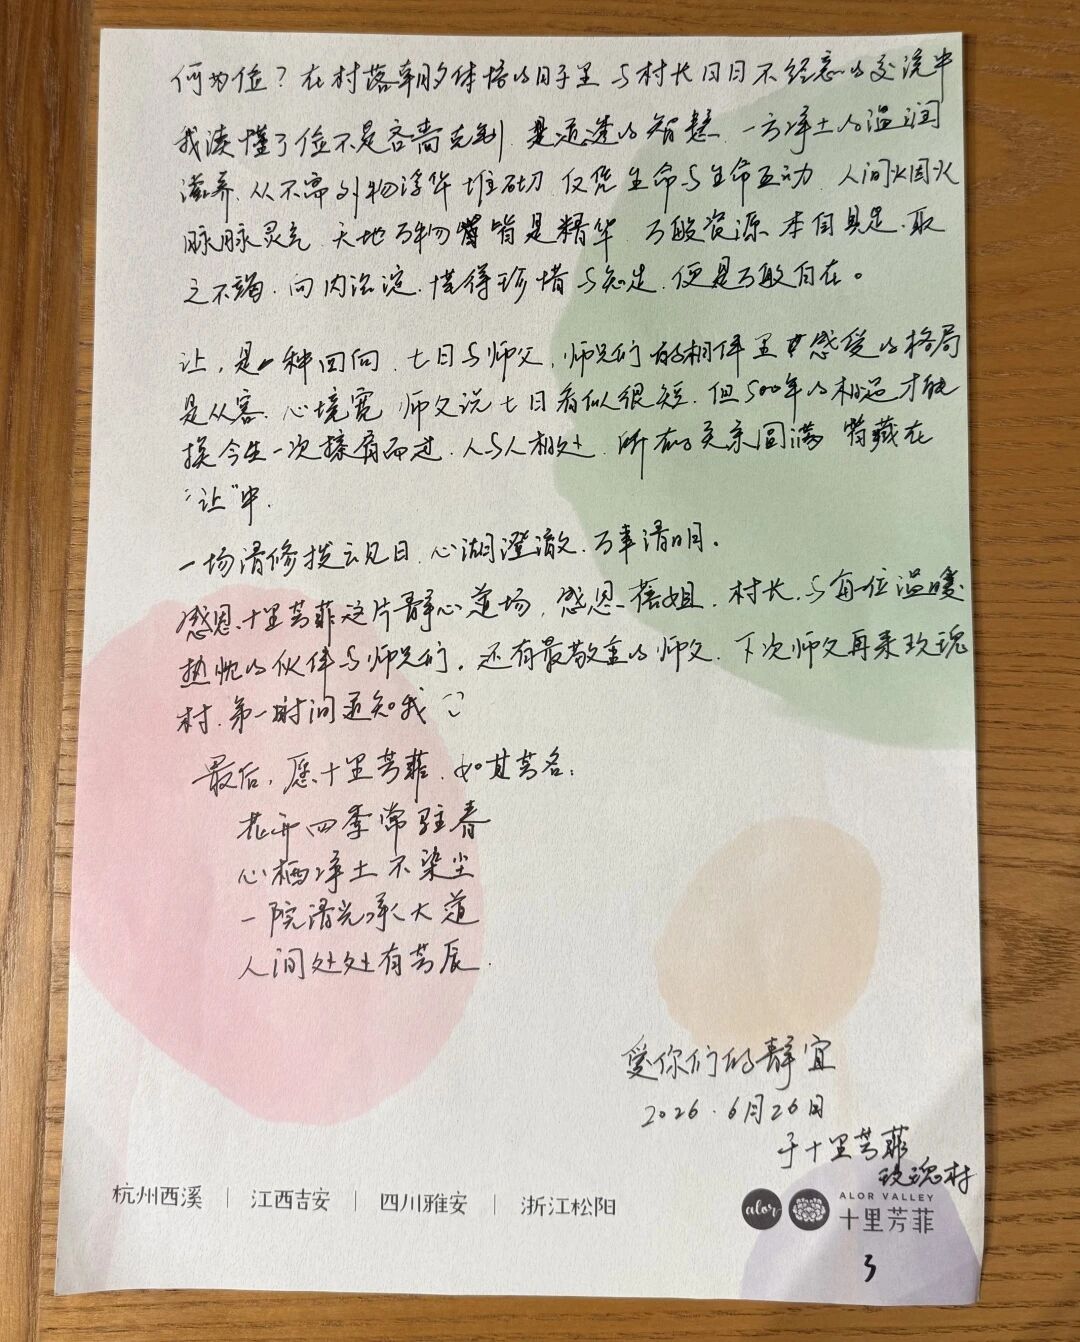 何为俭？在村落朝夕体悟的日子里 与村长日日不经意的交流中
我读懂了俭不是吝啬克制 是通透的智慧 一方净土的温润
滋养.从不需外物浮华堆砌 仅凭生命与生命互动 人间烟火
脉脉灵气.天地万物皆是精华 万般资源本自具足.取
之不竭.向内沉淀.懂得珍惜与知足.便是万般自在。
让,是一种回向.七日与师父,师兄们的相伴里感受的格局
是从容.心境宽 师父说七日看似很短.但500年的相遇才能
换今生一次擦肩而过.人与人相处.所有的关系圆满 皆藏在
"让"中.
一场清修拨云见日.心湖澄澈.万事清明。
感恩十里芳菲这片静心道场,感恩薇姐.村长.与每位温暖
热忱的伙伴与师兄们.还有最敬重的师父.下次师父再来玫瑰
村.第一时间通知我
最后,愿十里芳菲.如其芳名:
花开四季常驻春
心栖净土不染尘
一院清光承大道
人间处处有芳辰.
爱你们的静宜
2026.6月26日
于十里芳菲
玫瑰村
杭州西溪 | 江西吉安 | 四川雅安 | 浙江松阳
alor ALOR VALLEY
十里芳菲
3